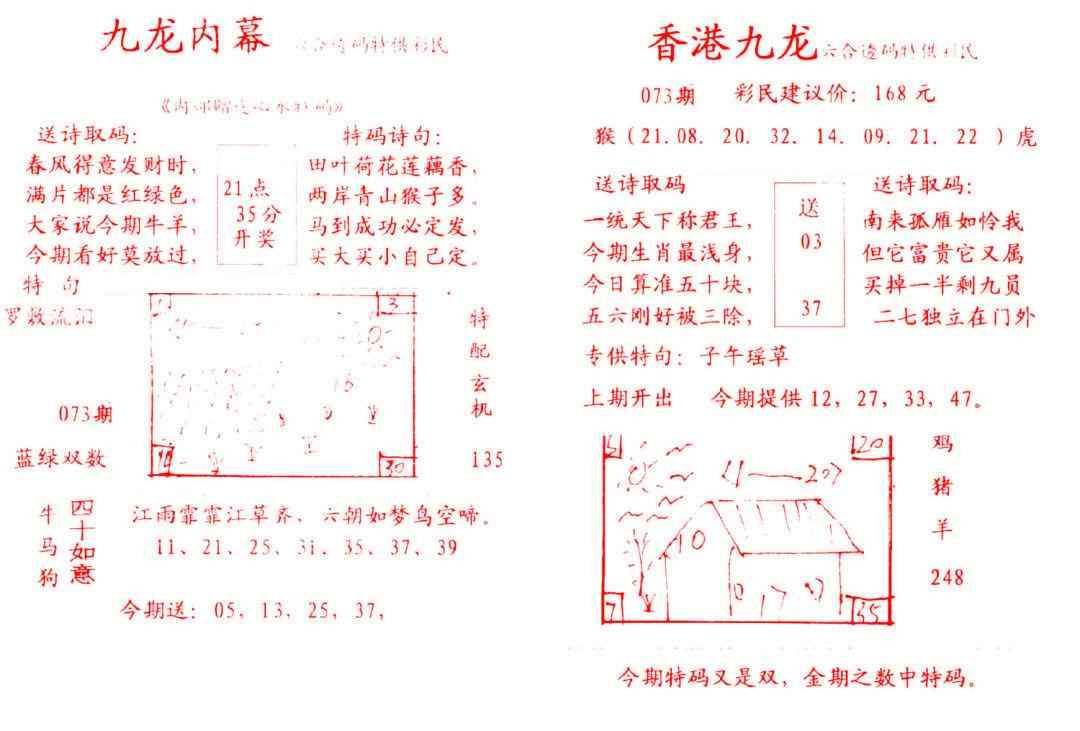 九龙内幕
六合透码特供彩民
送诗取码：
春风得意发财时，
满片都是红绿色，
大家说今期牛羊，
今期看好莫放过，
21点
35分
开奖
特码诗句：
田叶荷花莲藕香，
两岸青山猴子多。
马到成功必定发，
买大买小自己定。
特 句
073期
蓝绿双数
3
30
特
配
玄
机
135
牛
马
狗
四十如意
江雨霏霏江草齐，六朝如梦鸟空啼。
11、21、25、31、35、37、39
今期送：05，13，25，37，
香港九龙
六合透码特供彩民
073期 彩民建议价：168元
猴（21.08. 20. 32. 14. 09. 21. 22 ）虎
送诗取码
一统天下称君王，
今期生肖最浅身，
今日算准五十块，
五六刚好被三除，
送
03
37
送诗取码：
南来孤雁如怜我
但它富贵它又属
买掉一半剩九员
二七独立在门外
专供特句：子午瑶草
上期开出 今期提供12，27，33，47。
20
10
7
35
鸡
猪
羊
248
今期特码又是双，金期之数中特码。